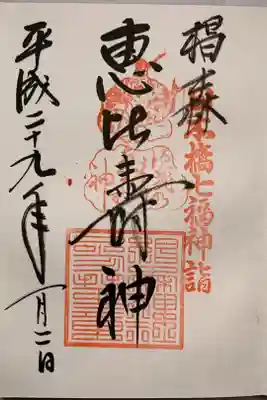 椙森
日本橋七福神詣
恵比寿神
平成二十九年一月二日